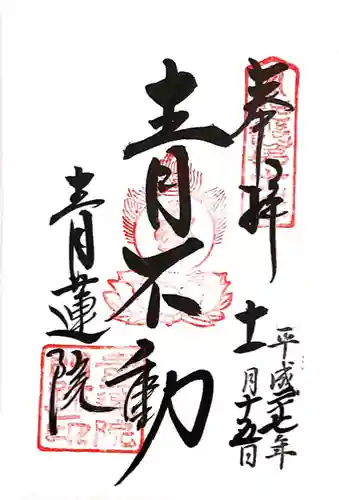 奉拝
平成二七年
十一月十五日
青不動
青蓮院